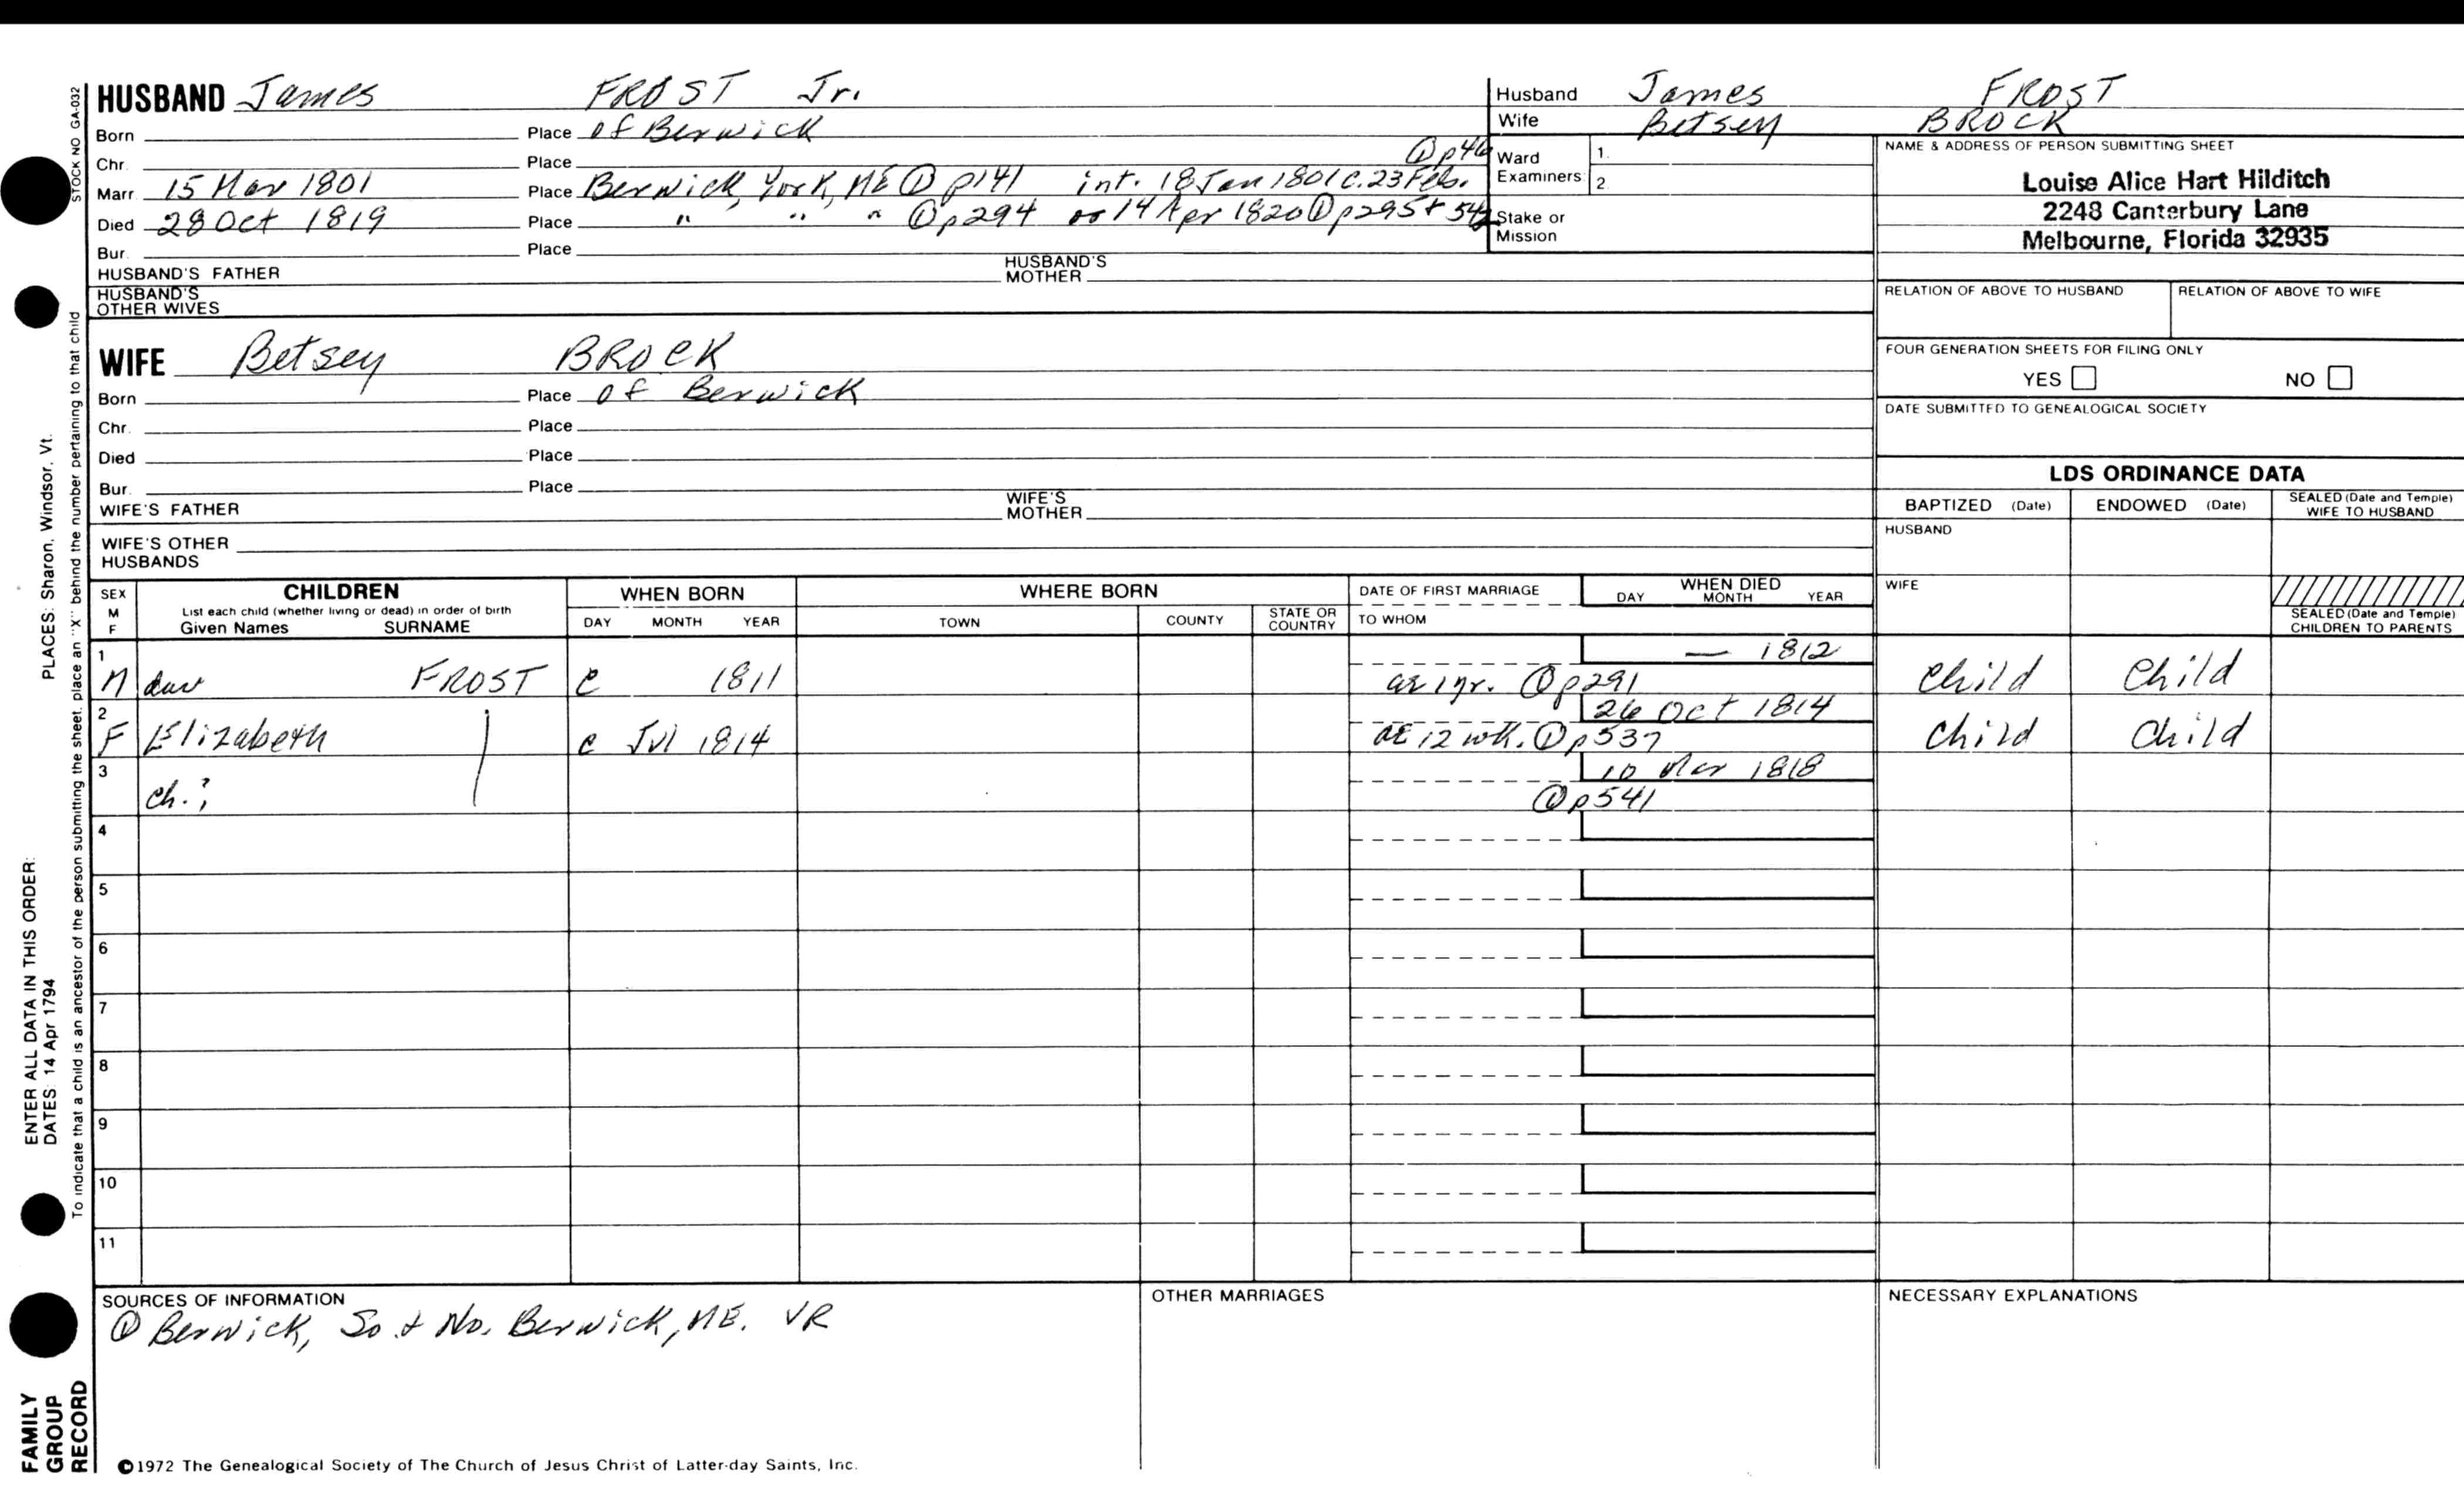 HUSBAND James FROST Jr.
Born Place of Berwick
Chr. Place ① p46
Marr. 15 Mar 1801 Place Berwick, York, ME ① p141 int. 18 Jan 1801 c. 23 Feb.
Died 28 Oct 1819 Place " " " ① p294 or 14 Apr 1820 ① p295 + 542
Bur. Place
HUSBAND'S FATHER HUSBAND'S MOTHER
HUSBAND'S OTHER WIVES
WIFE Betsey BROCK
Born Place of Berwick
Chr. Place
Died Place
Bur. Place
WIFE'S FATHER WIFE'S MOTHER
WIFE'S OTHER HUSBANDS
Husband James FROST
Wife Betsey BROCK
Ward Examiners 1. 2.
Stake or Mission
NAME & ADDRESS OF PERSON SUBMITTING SHEET
Louise Alice Hart Hilditch
2248 Canterbury Lane
Melbourne, Florida 32935
RELATION OF ABOVE TO HUSBAND RELATION OF ABOVE TO WIFE
FOUR GENERATION SHEETS FOR FILING ONLY
YES NO
DATE SUBMITTED TO GENEALOGICAL SOCIETY
LDS ORDINANCE DATA
BAPTIZED (Date) ENDOWED (Date) SEALED (Date and Temple) WIFE TO HUSBAND
HUSBAND
WIFE
SEALED (Date and Temple) CHILDREN TO PARENTS
SEX M F
CHILDREN
List each child (whether living or dead) in order of birth
Given Names SURNAME
WHEN BORN
DAY MONTH YEAR
WHERE BORN
TOWN COUNTY STATE OR COUNTRY
DATE OF FIRST MARRIAGE
TO WHOM
WHEN DIED
DAY MONTH YEAR
1 — 1812
dau FROST c 1811 ae 1 yr. ① p291 Child Child
2 26 Oct 1814
F Elizabeth c Jul 1814 ae 12 wk. ① p537 Child Child
3 10 Mar 1818
ch.? ① p541
4
5
6
7
8
9
10
11
SOURCES OF INFORMATION
① Berwick, So. & No. Berwick, ME. VR
OTHER MARRIAGES
NECESSARY EXPLANATIONS
©1972 The Genealogical Society of The Church of Jesus Christ of Latter-day Saints, Inc.
STOCK NO GA-032
To indicate that a child is an ancestor of the person submitting the sheet, place an "X" behind the number pertaining to that child
ENTER ALL DATA IN THIS ORDER:
DATES: 14 Apr 1794
PLACES: Sharon, Windsor, Vt.
FAMILY
GROUP
RECORD